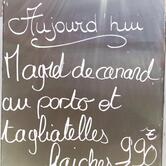 Aujourd'hui
Magret de canard
au porto et
tagliatelles
fraîches 99€